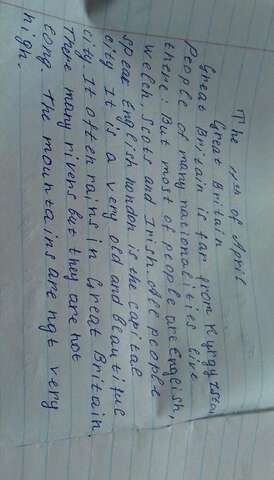 The 11th of April
Great Britain
Great Britain is far from Kyrgyzstan
people of many nationalities live
there. But most of people are English,
Welch, Scots and Irish. All people
speak English London is the capital
city It is a very old and beautiful
city. It often rains in Great Britain.
There many rivers but they are not
long. The mountains are not very
high.